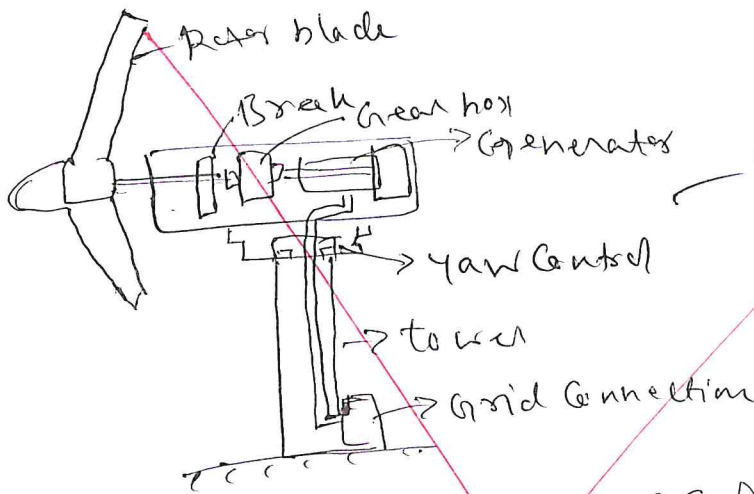 Rotor blade
Break
Gear box
Generator
Yaw Control
tower
Grid Connection